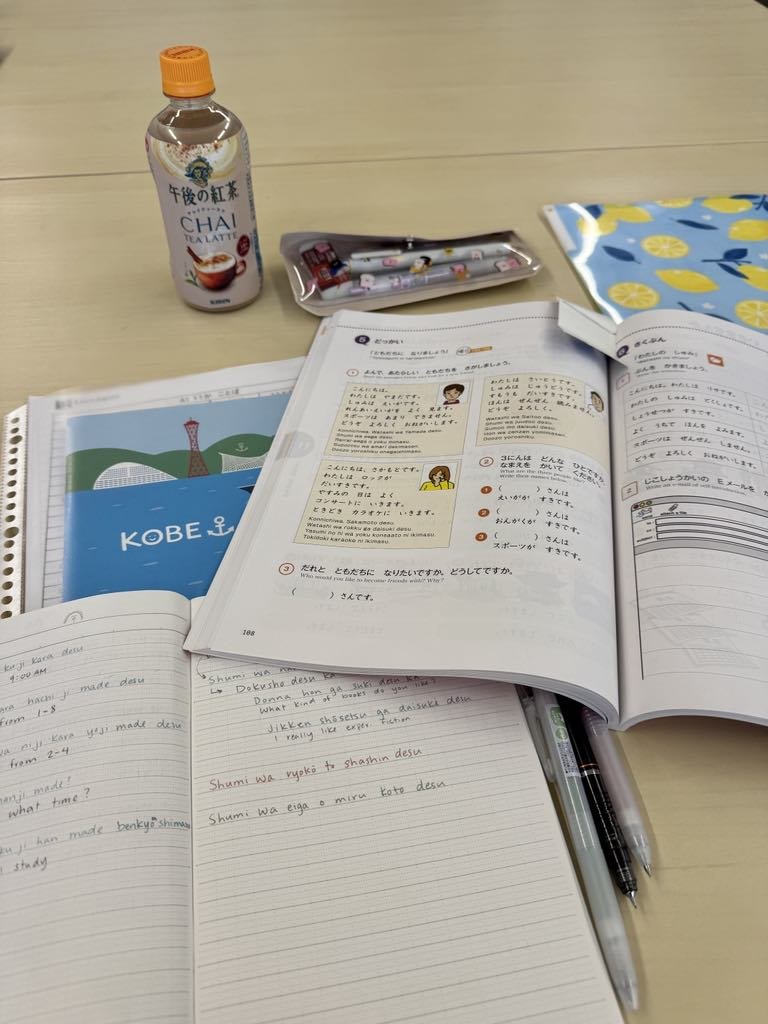 午後の紅茶
CHAI
TEA LATTE
KIRIN
KOBE
5 どっかい
「ともだちに なりましょう」
1 よんで、あたらしい ともだちを さがしましょう。
こんにちは。
わたしは やまだです。
しゅみは えいがです。
れんあいえいがを よく 見ます。
スポーツは あまり できません。
どうぞ よろしく おねがいします。
Konnichiwa. Watashi wa Yamada desu.
Shumi wa eega desu.
Ren'ai-eega o yoku mimasu.
Supootsu wa amari dekimasen.
Doozo yoroshiku onegaishimasu.
わたしは さいとうです。
しゅみは じゅうどうです。
すもうも だいすきです。
ほんは ぜんぜん 読みません。
どうぞ よろしく。
Watashi wa Saitoo desu.
Shumi wa juudoo desu.
Sumoo mo daisuki desu.
Hon wa zenzen yomimasen.
Doozo yoroshiku.
こんにちは。さかもとです。
わたしは ロックが
だいすきです。
やすみの 日は よく
コンサートに いきます。
ときどき カラオケに いきます。
Konnichiwa. Sakamoto desu.
Watashi wa rokku ga daisuki desu.
Yasumi no hi wa yoku konsaato ni ikimasu.
Tokidoki karaoke ni ikimasu.
2 3にんは どんな ひとですか。
なまえを かいて ください。
What are the three people like?
Write their names below.
1 ( ) さんは
えいがが すきです。
2 ( ) さんは
おんがくが すきです。
3 ( ) さんは
スポーツが すきです。
3 だれと ともだちに なりたいですか。どうしてですか。
Who would you like to become friends with? Why?
( ) さんです。
108
6 さくぶん
「わたしの しゅみ」
ぶんを かきましょう。
こんにちは。わたしは
しょうせつが すきです。
よく うちで ほんを よみます。
スポーツは ぜんぜん しません。
どうぞ よろしく
2 じこしょうかいの Eメールを
Write an e-mail of self-introduction.
kuji kara desu
9:00 AM
hachi ji made desu
from 1-8
niji kara yoji made desu
from 2-4
nanji made?
what time?
kuji han made benkyō shimasu
study
Shumi wa
↳ Dokusho desu
Donna hon ga suki desu ka
What kind of books do you like?
Jikken shōsetsu ga daisuki desu
I really like exper. fiction
Shumi wa ryokō to shashin desu
Shumi wa eiga o miru koto desu